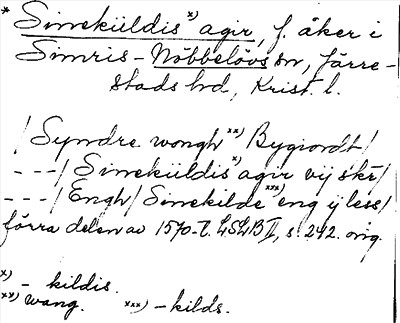 * Simeküldis x) agir, f. åker i
Simris-Nöbbelövs sn, Järre-
stads hd, Krist. l.
/ Syndre wongh xx) Bygiordt /
---/ Simeküldis x) agir vij skr /
---/ Engh / Simekilde xxx) eng ij less /
förra delen av 1570-t. LSLB II, s. 242. orig.
x) - kildis.
xx) wang. xxx) - kilds.